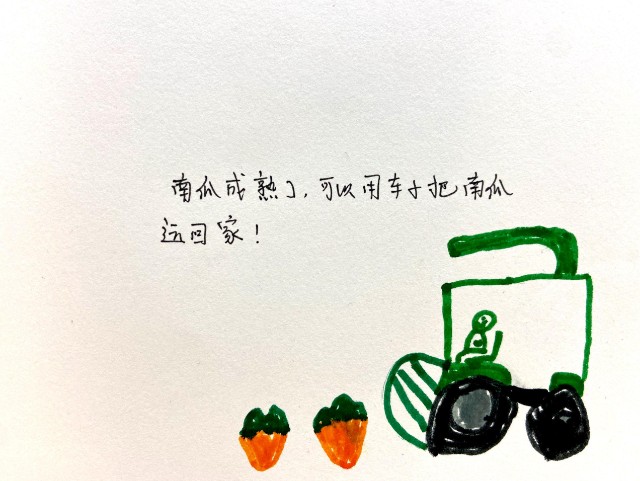 南瓜成熟了，可以用车子把南瓜
运回家！